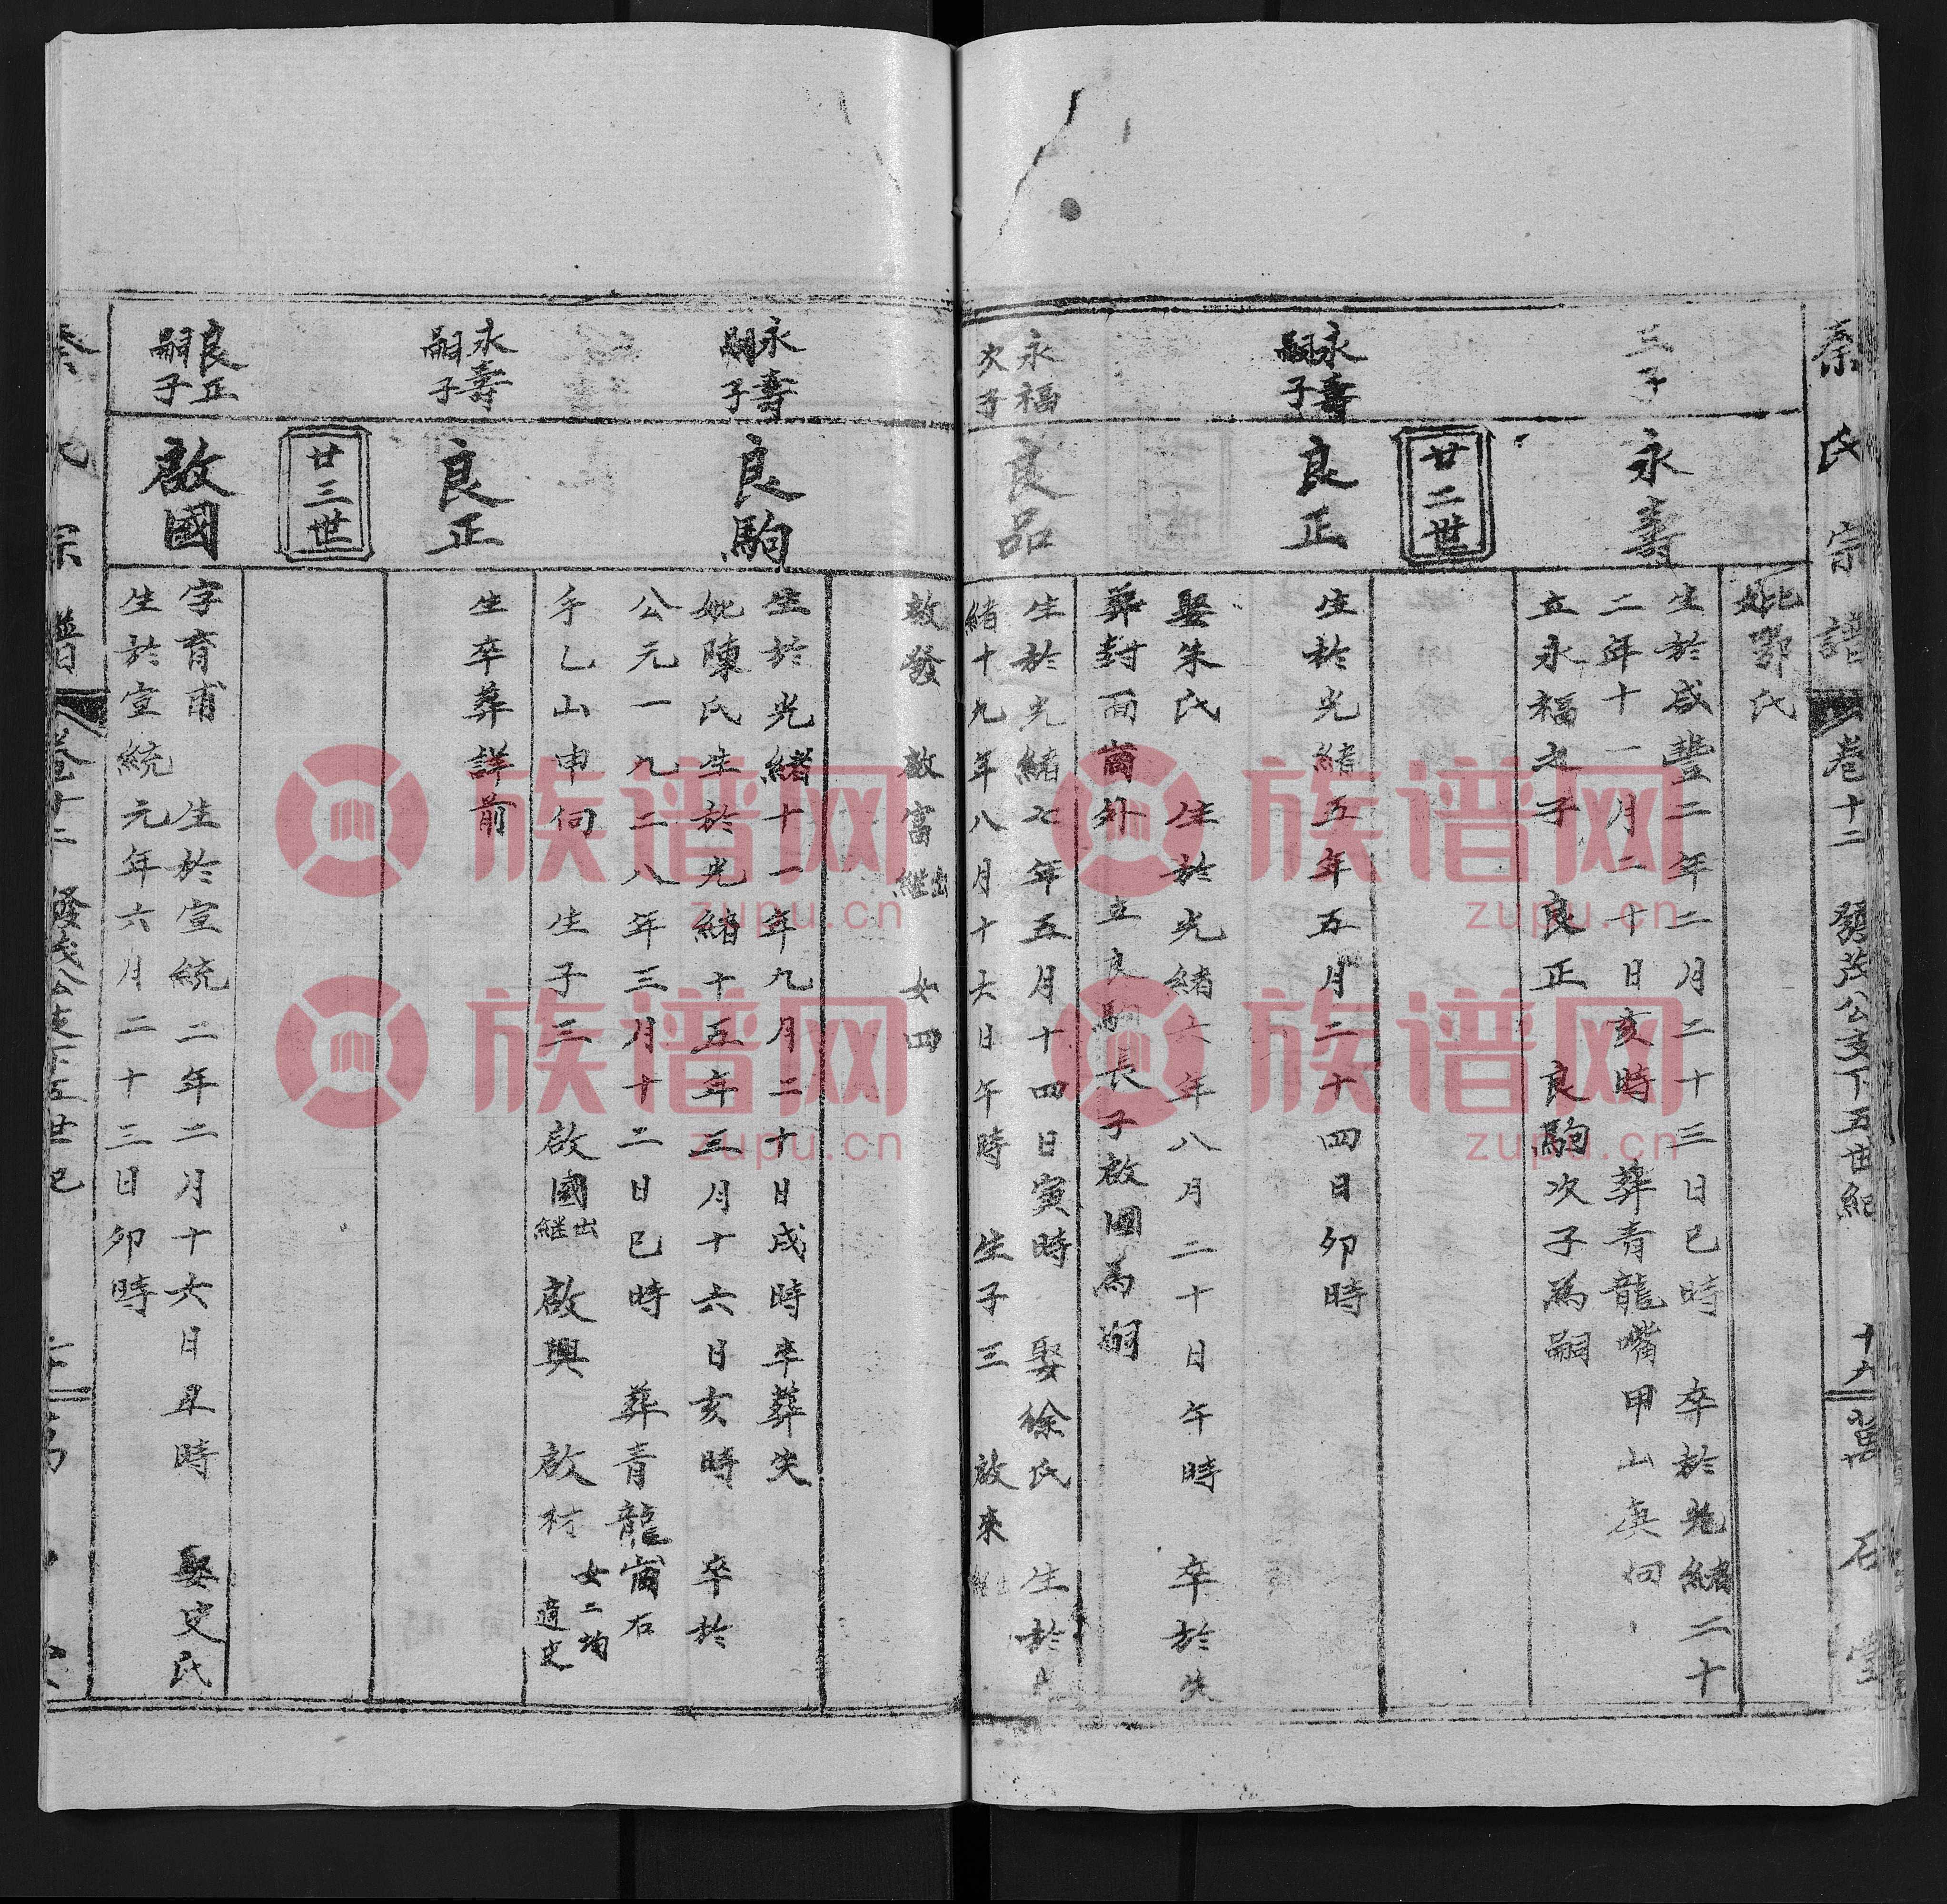 秦氏宗譜
卷十二 發茂公支下五世紀
十六
萬石堂
妣鄂氏
三子
永壽
生於咸豐二年二月二十三日巳時 卒於光緒二十
二年十一月二十日亥時 葬青龍嘴甲山庚向
立永福之子 良正 良駒次子為嗣
廿二世
永壽
嗣子
良正
生於光緒五年五月二十四日卯時
娶朱氏 生於光緒六年八月二十日午時 卒於失
葬對面崗外 立良駒長子啟国為嗣
永福
次子
良品
生於光緒七年五月十四日寅時 娶徐氏 生於光
緒十九年八月十六日午時 生子三 啟來
啟發 啟富出継 女四
永壽
嗣子
良駒
生於光緒十一年九月二十日戌時卒葬失
妣陳氏生於光緒十五年三月十六日亥時 卒於
公元一九二八年三月十二日巳時 葬青龍崗石
乙山申向 生子三 啟國出継 啟興 啟材 女二均適史
永壽
嗣子
良正
生卒葬詳前
廿三世
良正
嗣子
啟國
字育甫 生於宣統二年二月十六日丑時 娶史氏
生於宣統元年六月二十三日卯時
宗譜
卷十二
族谱网
zupu.cn
族谱网
zupu.cn
族谱网
zupu.cn
族谱网
zupu.cn